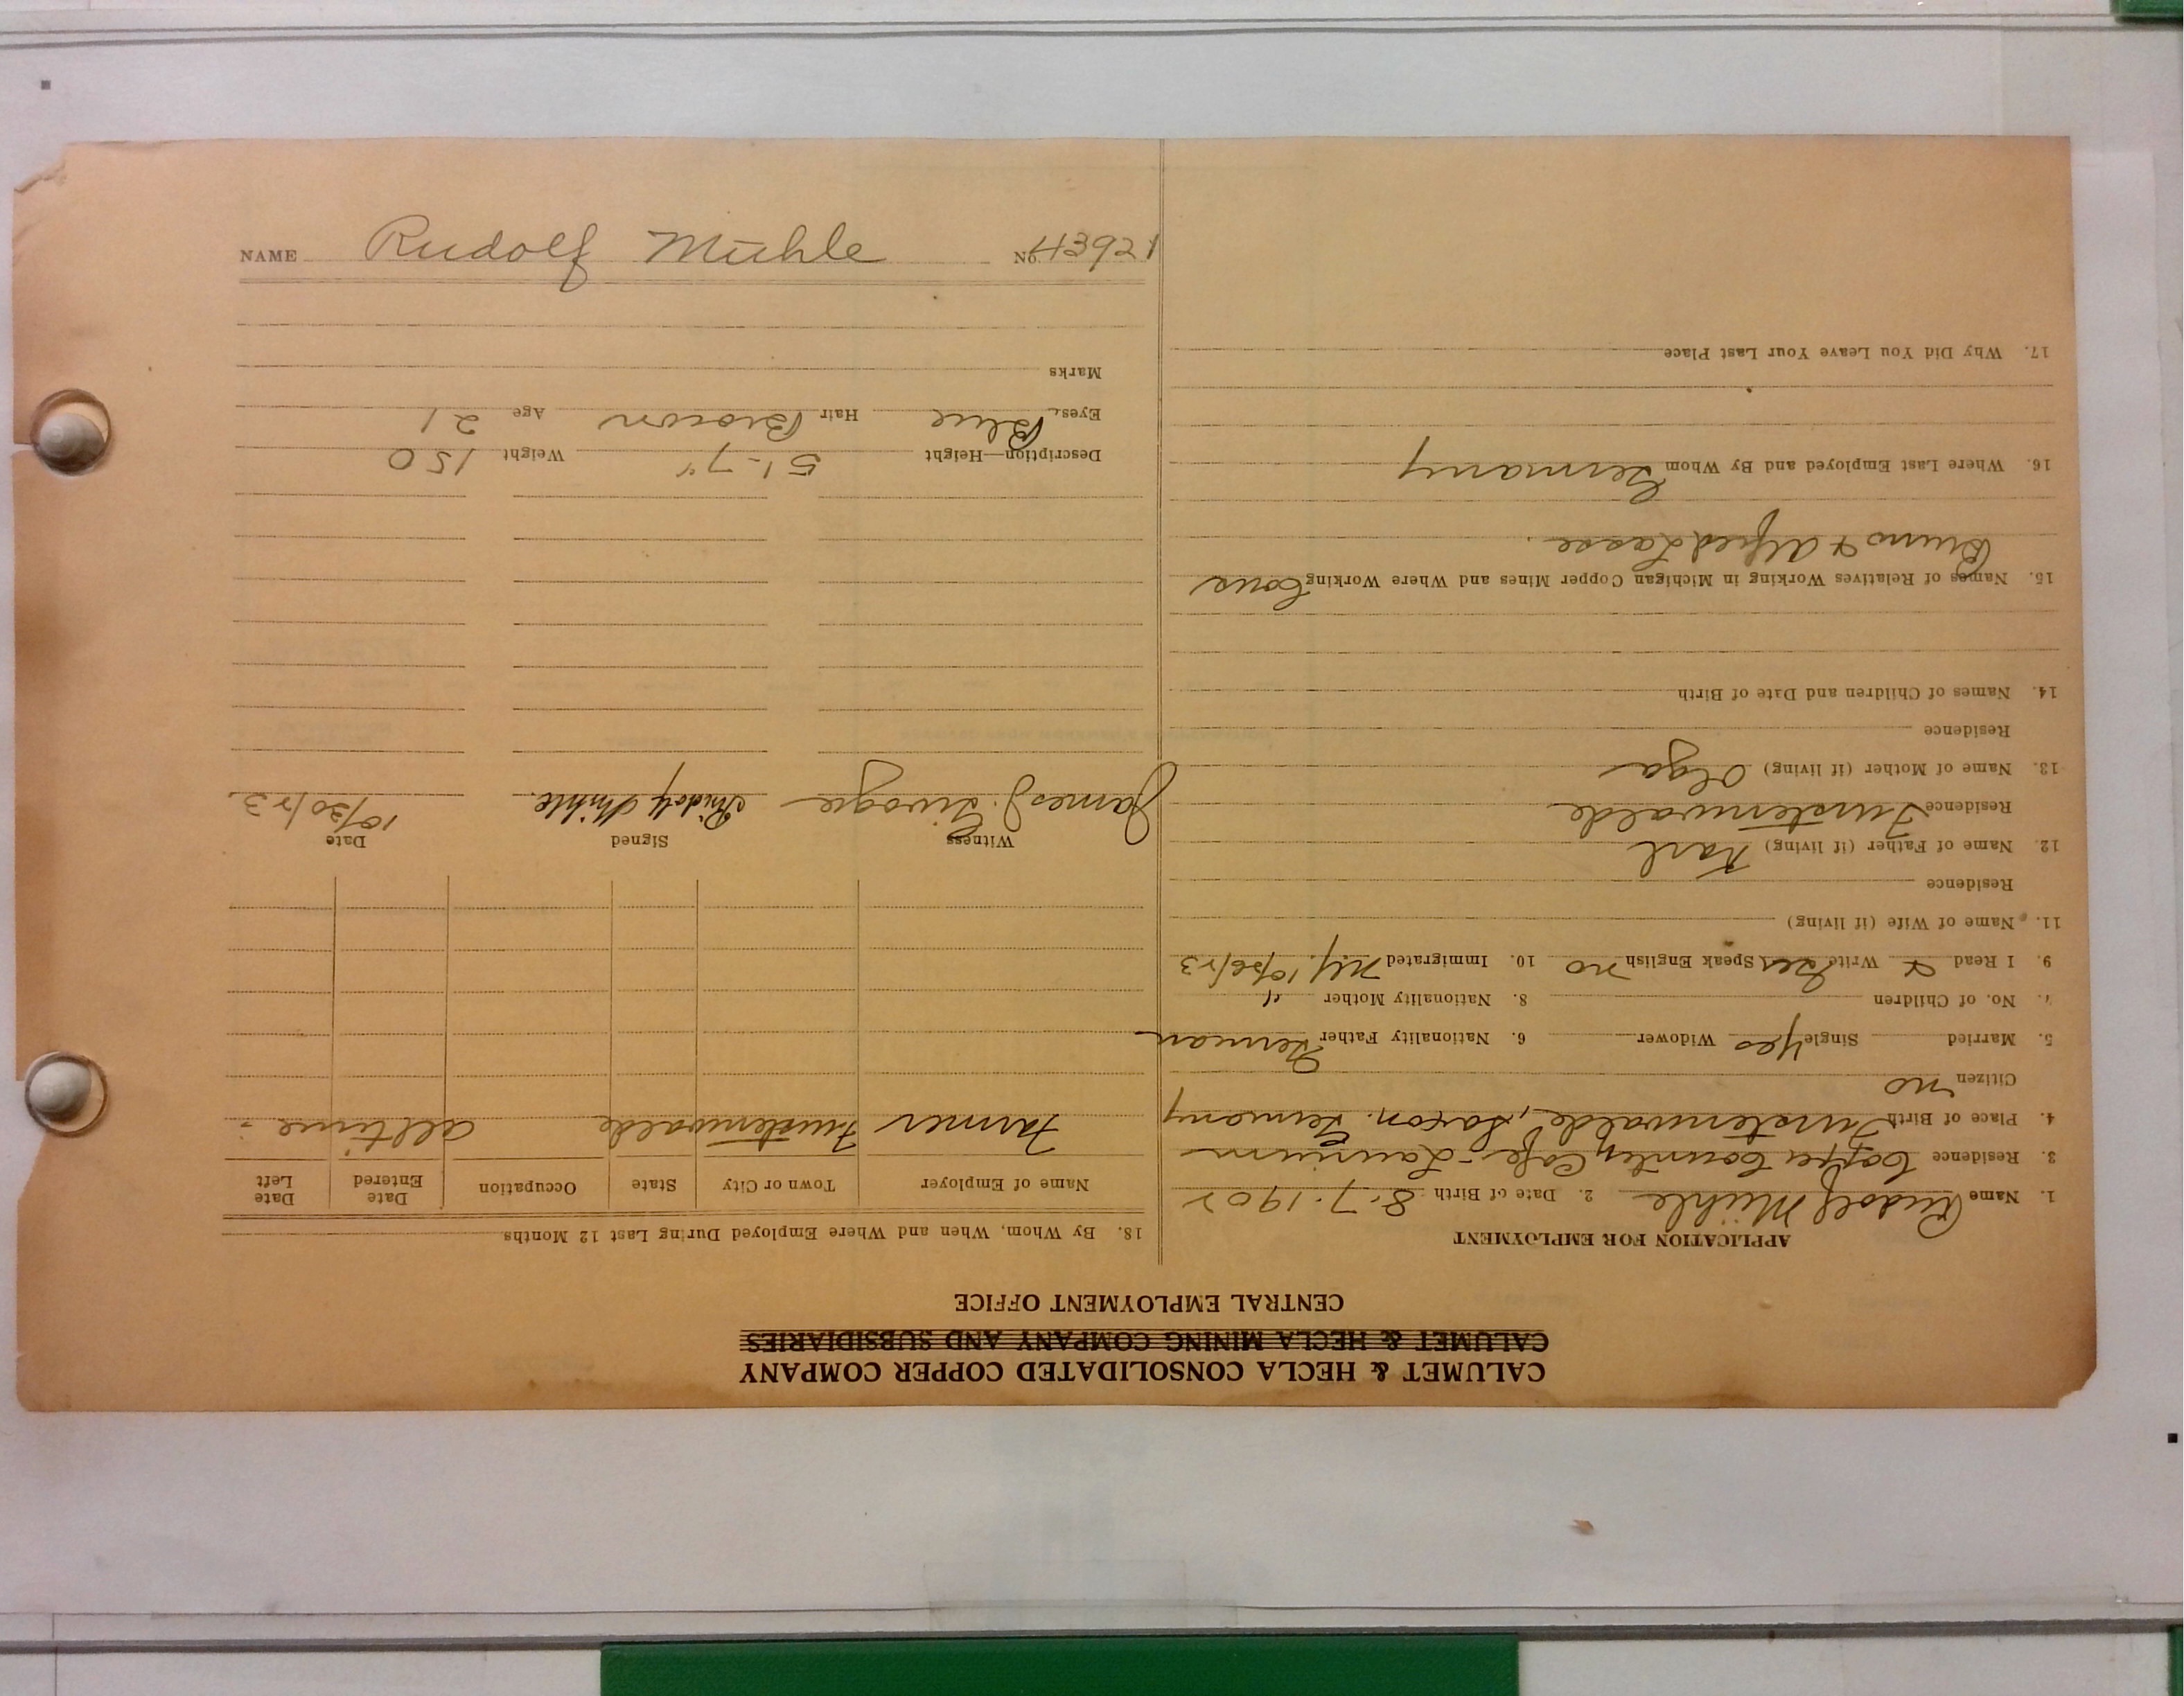 NAME Rudolf Mühle No. 43921
CALUMET & HECLA CONSOLIDATED COPPER COMPANY
CALUMET & HECLA MINING COMPANY AND SUBSIDIARIES
CENTRAL EMPLOYMENT OFFICE
APPLICATION FOR EMPLOYMENT
1. Name Rudolf Mühle 2. Date of Birth 8-7-1902
3. Residence Copper Country Cafe - Laurium
4. Place of Birth Furstenwalde, Saxon. Germany
Citizen no
5. Married Single Yes Widower 6. Nationality Father German
7. No. of Children 8. Nationality Mother "
9. I Read & Write Ger Speak English no 10. Immigrated N.Y. 10/26/23
11. Name of Wife (if living)
Residence
12. Name of Father (if living) Karl
Residence Furstenwalde
13. Name of Mother (if living) Olga
Residence
14. Names of Children and Date of Birth
15. Names of Relatives Working in Michigan Copper Mines and Where Working Cous
Bruno & Alfred Lasse.
16. Where Last Employed and By Whom Germany
17. Why Did You Leave Your Last Place
18. By Whom, When and Where Employed During Last 12 Months
Name of Employer Town or City State Occupation Date Entered Date Left
Farmer Furstenwalde all time -
Witness Signed Date
James J. Rudolf Mühle. 10/30/23
Description—Height 5'-7" Weight 150
Eyes Blue Hair Brown Age 21
Marks